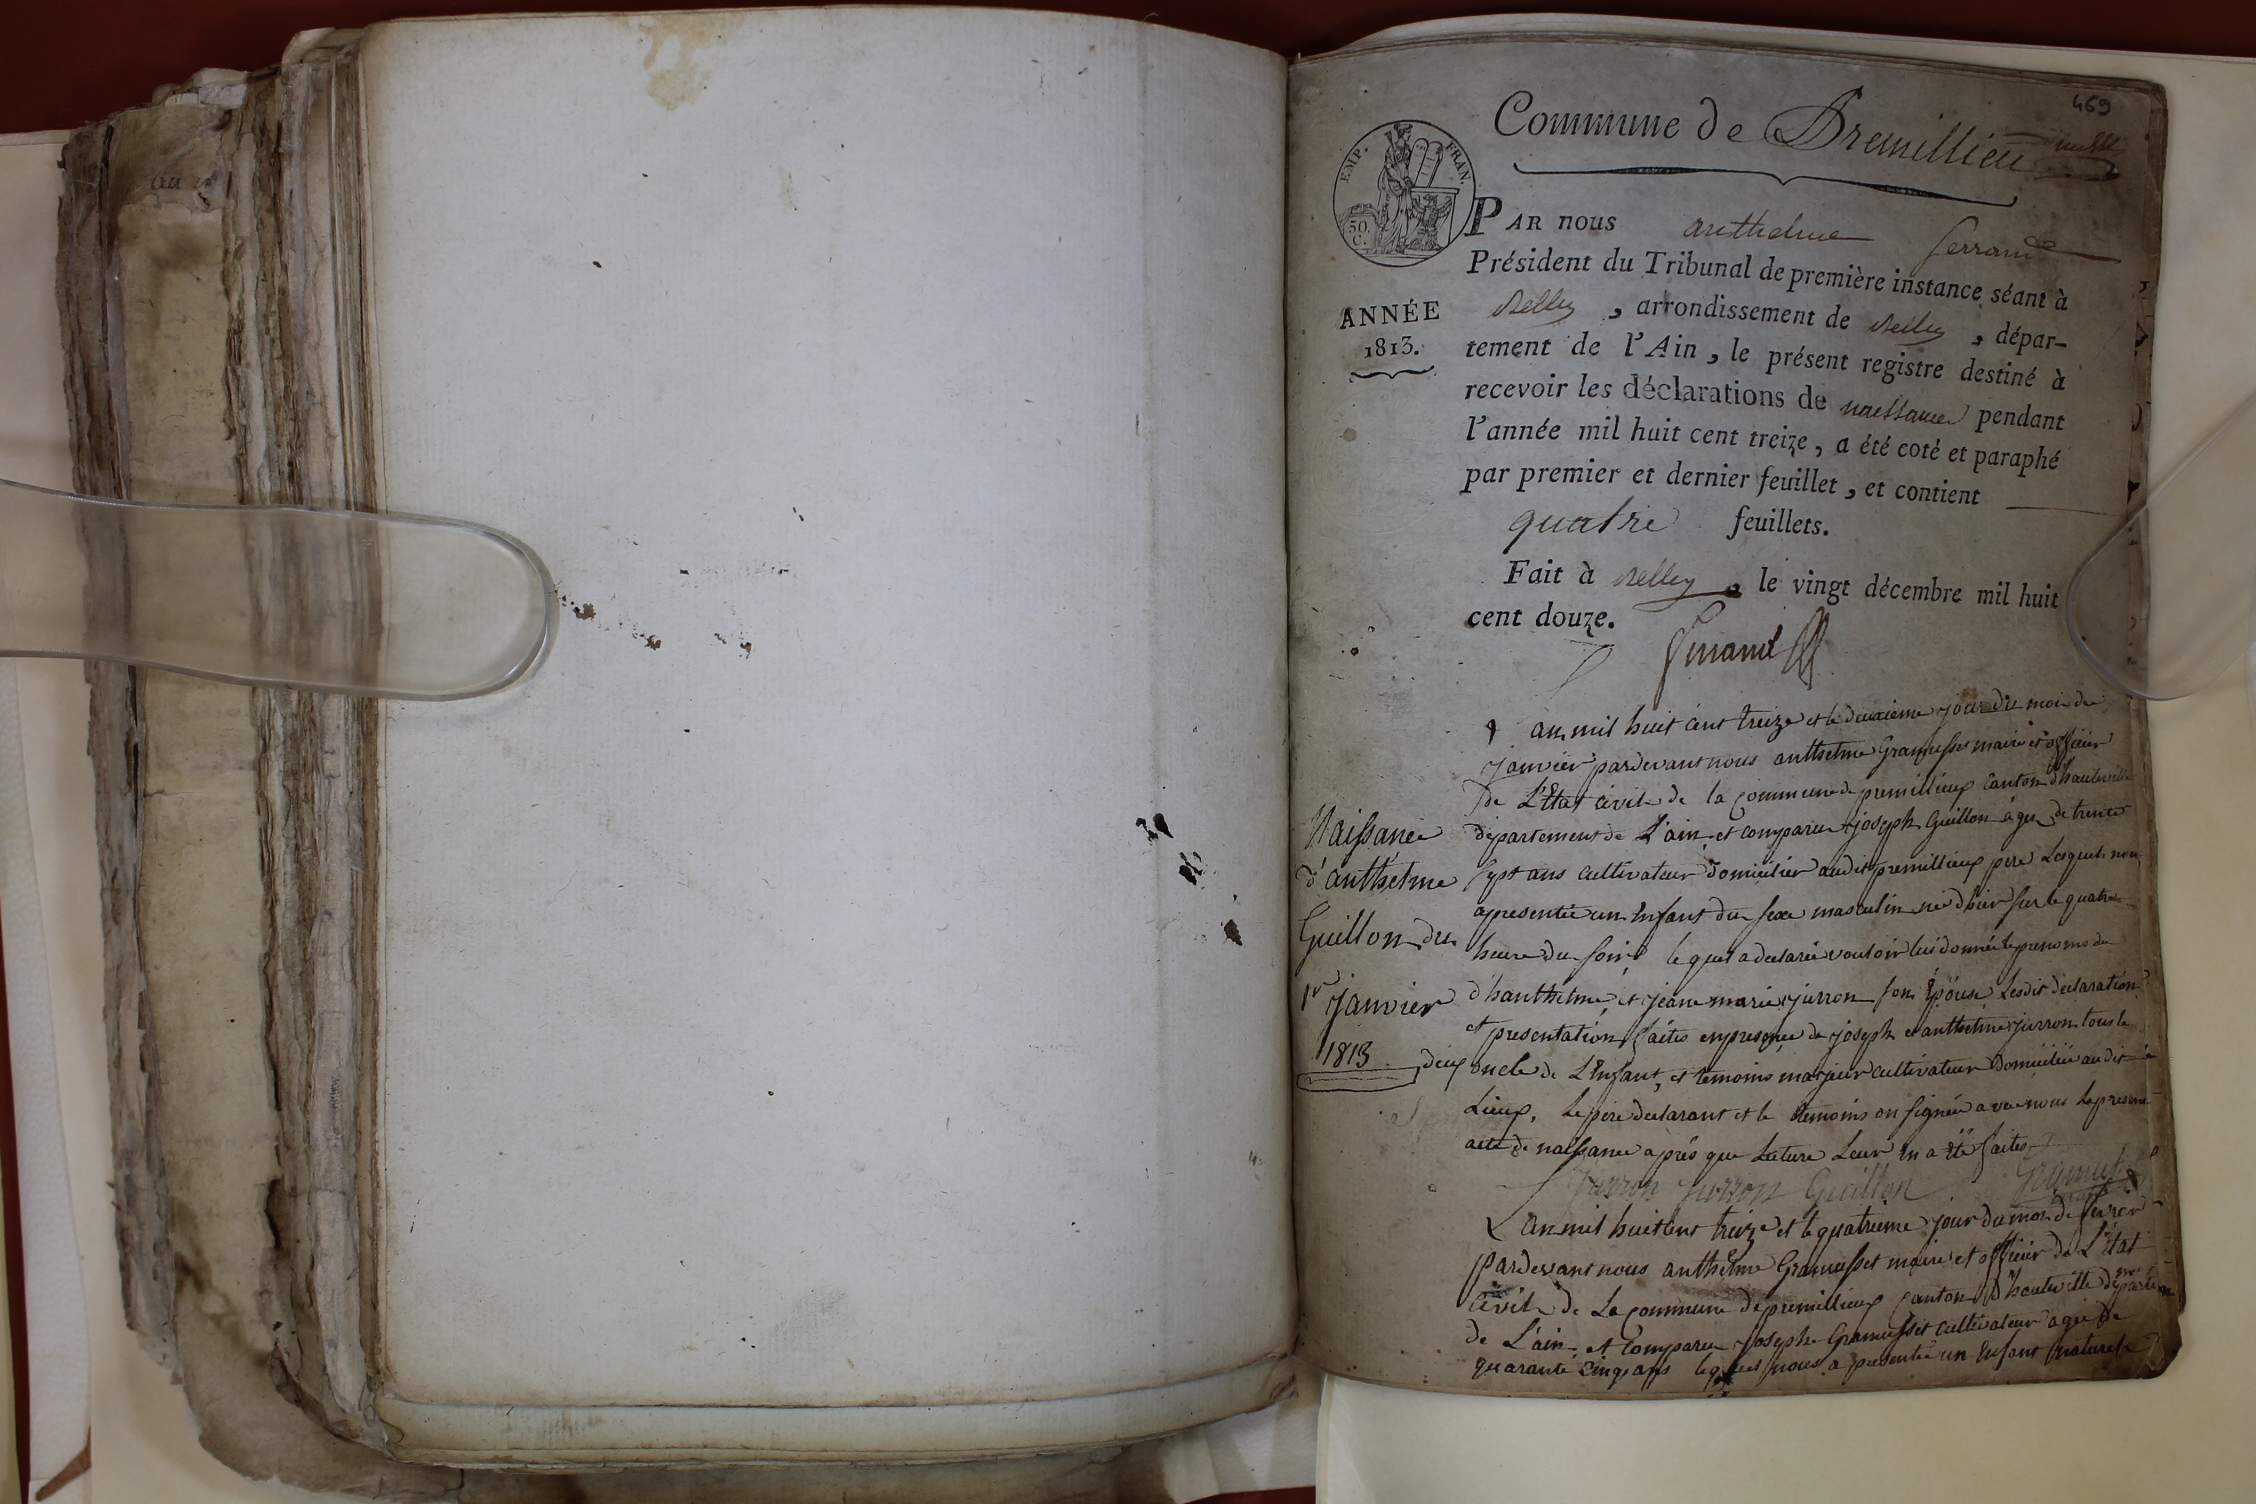 469
Commune de Premillieu
EMP. FRAN.
50 C.
PAR nous anthelme ferrand
Président du Tribunal de première instance séant à
Belley, arrondissement de Belley, dépar-
tement de l'Ain, le présent registre destiné à
recevoir les déclarations de naissance pendant
l'année mil huit cent treize, a été coté et paraphé
par premier et dernier feuillet, et contient
quatre feuillets.
Fait à Belley, le vingt décembre mil huit
cent douze.
ferrand
ANNÉE
1813.
Naissance
d'anthelme
Guillon du
1er janvier
1813
L'an mil huit cent treize et le deuxieme jour du mois de
janvier pardevant nous anthelme Gramusset maire et officier
de L'Etat civil de la commune de premillieux canton d'hauteville
departement de L'ain et comparu joseph Guillon agé de trente
sept ans cultivateur domicilier audit premillieux pere Lesquel nou
apresentée un Enfant du sexe masculin né d'hier sur le quatre
heure du soir, le quel a declaréé vouloir lui donnée le prenoms de
d'hanthelme, et jeane marie jurron son Epouse Lesdit declaration
et presentation faites enpresence de joseph et anthelme jurron tous le
deux oncle de L'Enfant, et temoins majeur cultivateur Domicilié audit
Lieux, Le pere declarant et le temoins on signée avec nous le present
acte de naissance aprés que Lecture Leur en a été faites
Jurron jurron Guillon Gramusset
L'an mil huit cent treize et le quatrieme jour du mois de fevrier
pardevant nous anthelme Gramusset maire et officier de L'état
Civil de La commune de premillieux canton d'hauteville departement
de L'ain et comparu joseph Gramusset cultivateur agée de
quarante cinq ans lequel nous a presentée un Enfant naturel